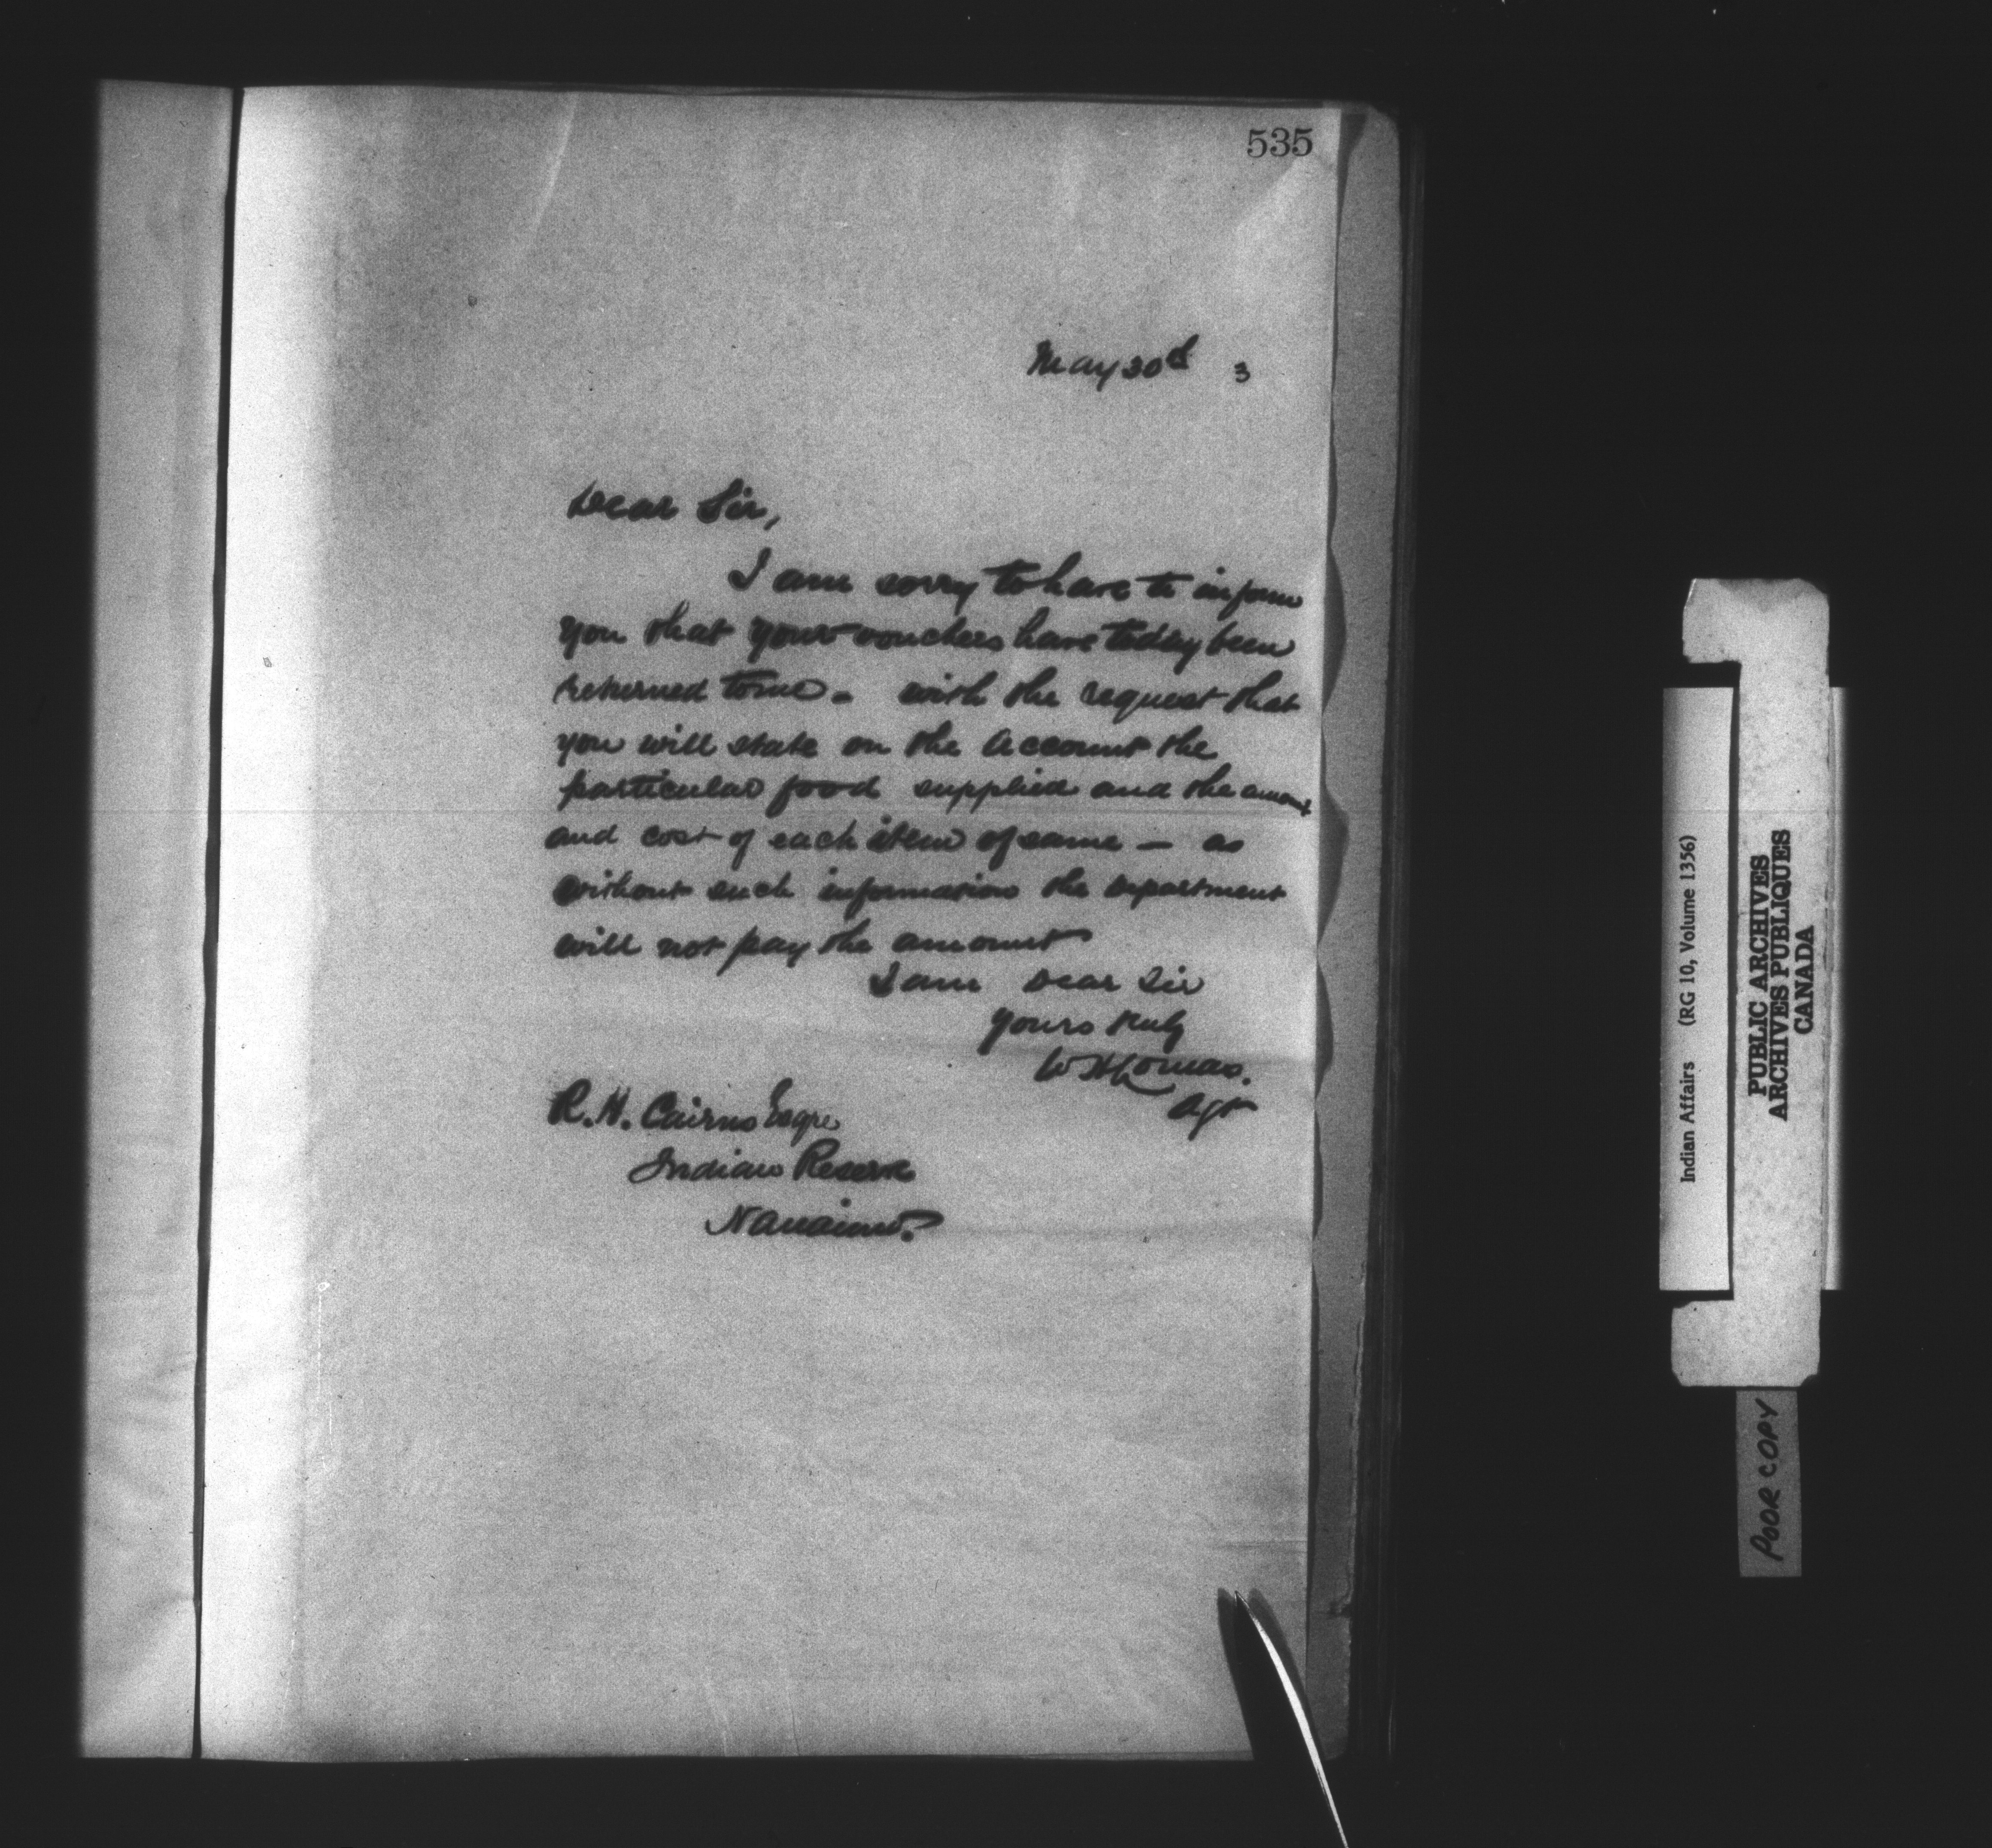 535
May 30th 3
Dear Sir,
I am sorry to have to inform
you that your vouchers have today been
returned to me - with the request that
you will state on the account the
particular food supplied and the amount
and cost of each item of same - as
without such information the Department
will not pay the amount
I am Dear Sir
Yours truly
W H Lomas.
Agt
R. H. Cairns Esqre
Indian Reserve
Nanaimo.
Indian Affairs (RG 10, Volume 1356)
PUBLIC ARCHIVES
ARCHIVES PUBLIQUES
CANADA
POOR COPY